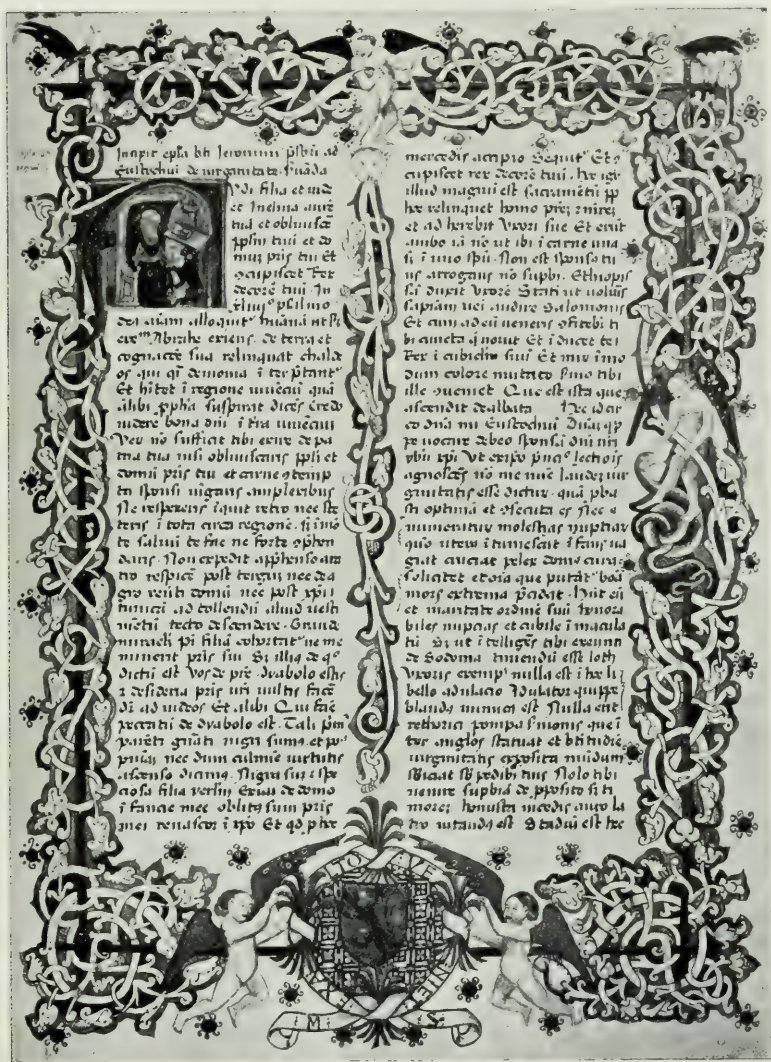 Incipit epla bti Jeronimi psbri ad
Eustochiū de uirginitate
Udi filia et uide
et Inclina aurē
tua et obliuisce
pplm tui et do
mus pris tui Et
ꝯcupiscet Rex
decorē tuū. In
psalmo
deꝰ aīam alloquit humanā
Abrahe exiens. de terra et
cognacōe sua relinquat chalde
os qui qī demonia ī terptant
Et hītet ī regione uiuenciū quā
alibi ppha suspirat dicēs Credo
uidere bona dni ī tra uiuenciū
Ueꝝ nō sufficit tibi exire de pa
tria tua nisi obliuiscaris ppli et
domū pris tui et carne ꝯtemp
ta sponsi iūgaris amplexibus
Ne respexeris īquit retro nec ste
teris ī tota circa regione. sī mō
te saluū te fac ne forte ꝯphen
daris. Non expedit apphenso ara
tro respicē post tergū nec de a
gro reuiti domū nec post xpi
tunicā ad tollendū aliud uesti
mētū tecto descendere. Grande
miraclī Pr filiā cohortat ne me
minerit pris sui
dictū est Uos de pre dyabolo estis
⁊ desideria pris uri uultis facē
dr ad iudeos Et alibi Qui facit
peccatū de dyabolo est. Tali pm
parēti gnati nigri sumꝰ et post
nec dum culmīe uirtutis
ascenso dicimꝰ. Nigra sum ⁊ spe
ciosa filia Exiui de domo
ī fancie mee oblitꝰ sum pris
mei renascor ī xpo Et qd p hoc
mercedis accipio Sequit Et ꝯ
cupiscet rex decorē tuū. hoc igr
illud magnū est sacramētū pp
hoc relinquet homo prē ⁊ mrē
et ad herebit uxori sue Et erūt
ambo iā nō ut ibi ī carne una
sī ī uno spū. Non est sponsꝰ tu
us arrogans nō supbꝰ. Ethiopis
sā duxit uxorē Statī ut uoluīs
sapiam ueī audire Salomonis
Et cum ad eū ueneris ꝯfitebit ti
bi cuncta q̄ nouit Et īducet te
Rex ī cubiclm suū Et mīr īmo
dum colore mutato sermo tibi
ille ꝯueniet Que est ista que
ascendit dealbata Hec idcir
co dnā mi Eustochiū Dnāz qp
pe uocare debeo sponsā dni
xpi Ut ex ipo pncꝰ lectiōis
agnoscēs nō me nūc laudes uir
ginitatis esse dicturꝰ. quā pba
sti optimā et ꝯsecuta es Nec
numeratur molestias nuptiaꝝ
quō uterꝰ ītumescat īfans ua
giat cruciat pelex domꝰ cura
solicitet et oīa que putāt bōa
mors extrema pcidat. Hnt eī
et maritate ordinē suū honora
biles nupcias et cubile īmacula
tū Sꝫ ut ītelligēs tibi exeunti
de Sodoma timendū esse loth
uxoris exempl nulla est ī hoc li
bello adulacio Adulator quippe
blandꝰ inimicꝰ est Nulla erit
rethorici pompa sermonis que ī
ter anglos statuat et btitudīe
uirginitatis exposita mūdum
sbiciat sb pedibꝰ tuis Nolo tibi
uenire supbiā de pposito sī ti
morē honusta incedis auro la
tro uitandꝰ est Stadiū est hec
TO AVE
M S